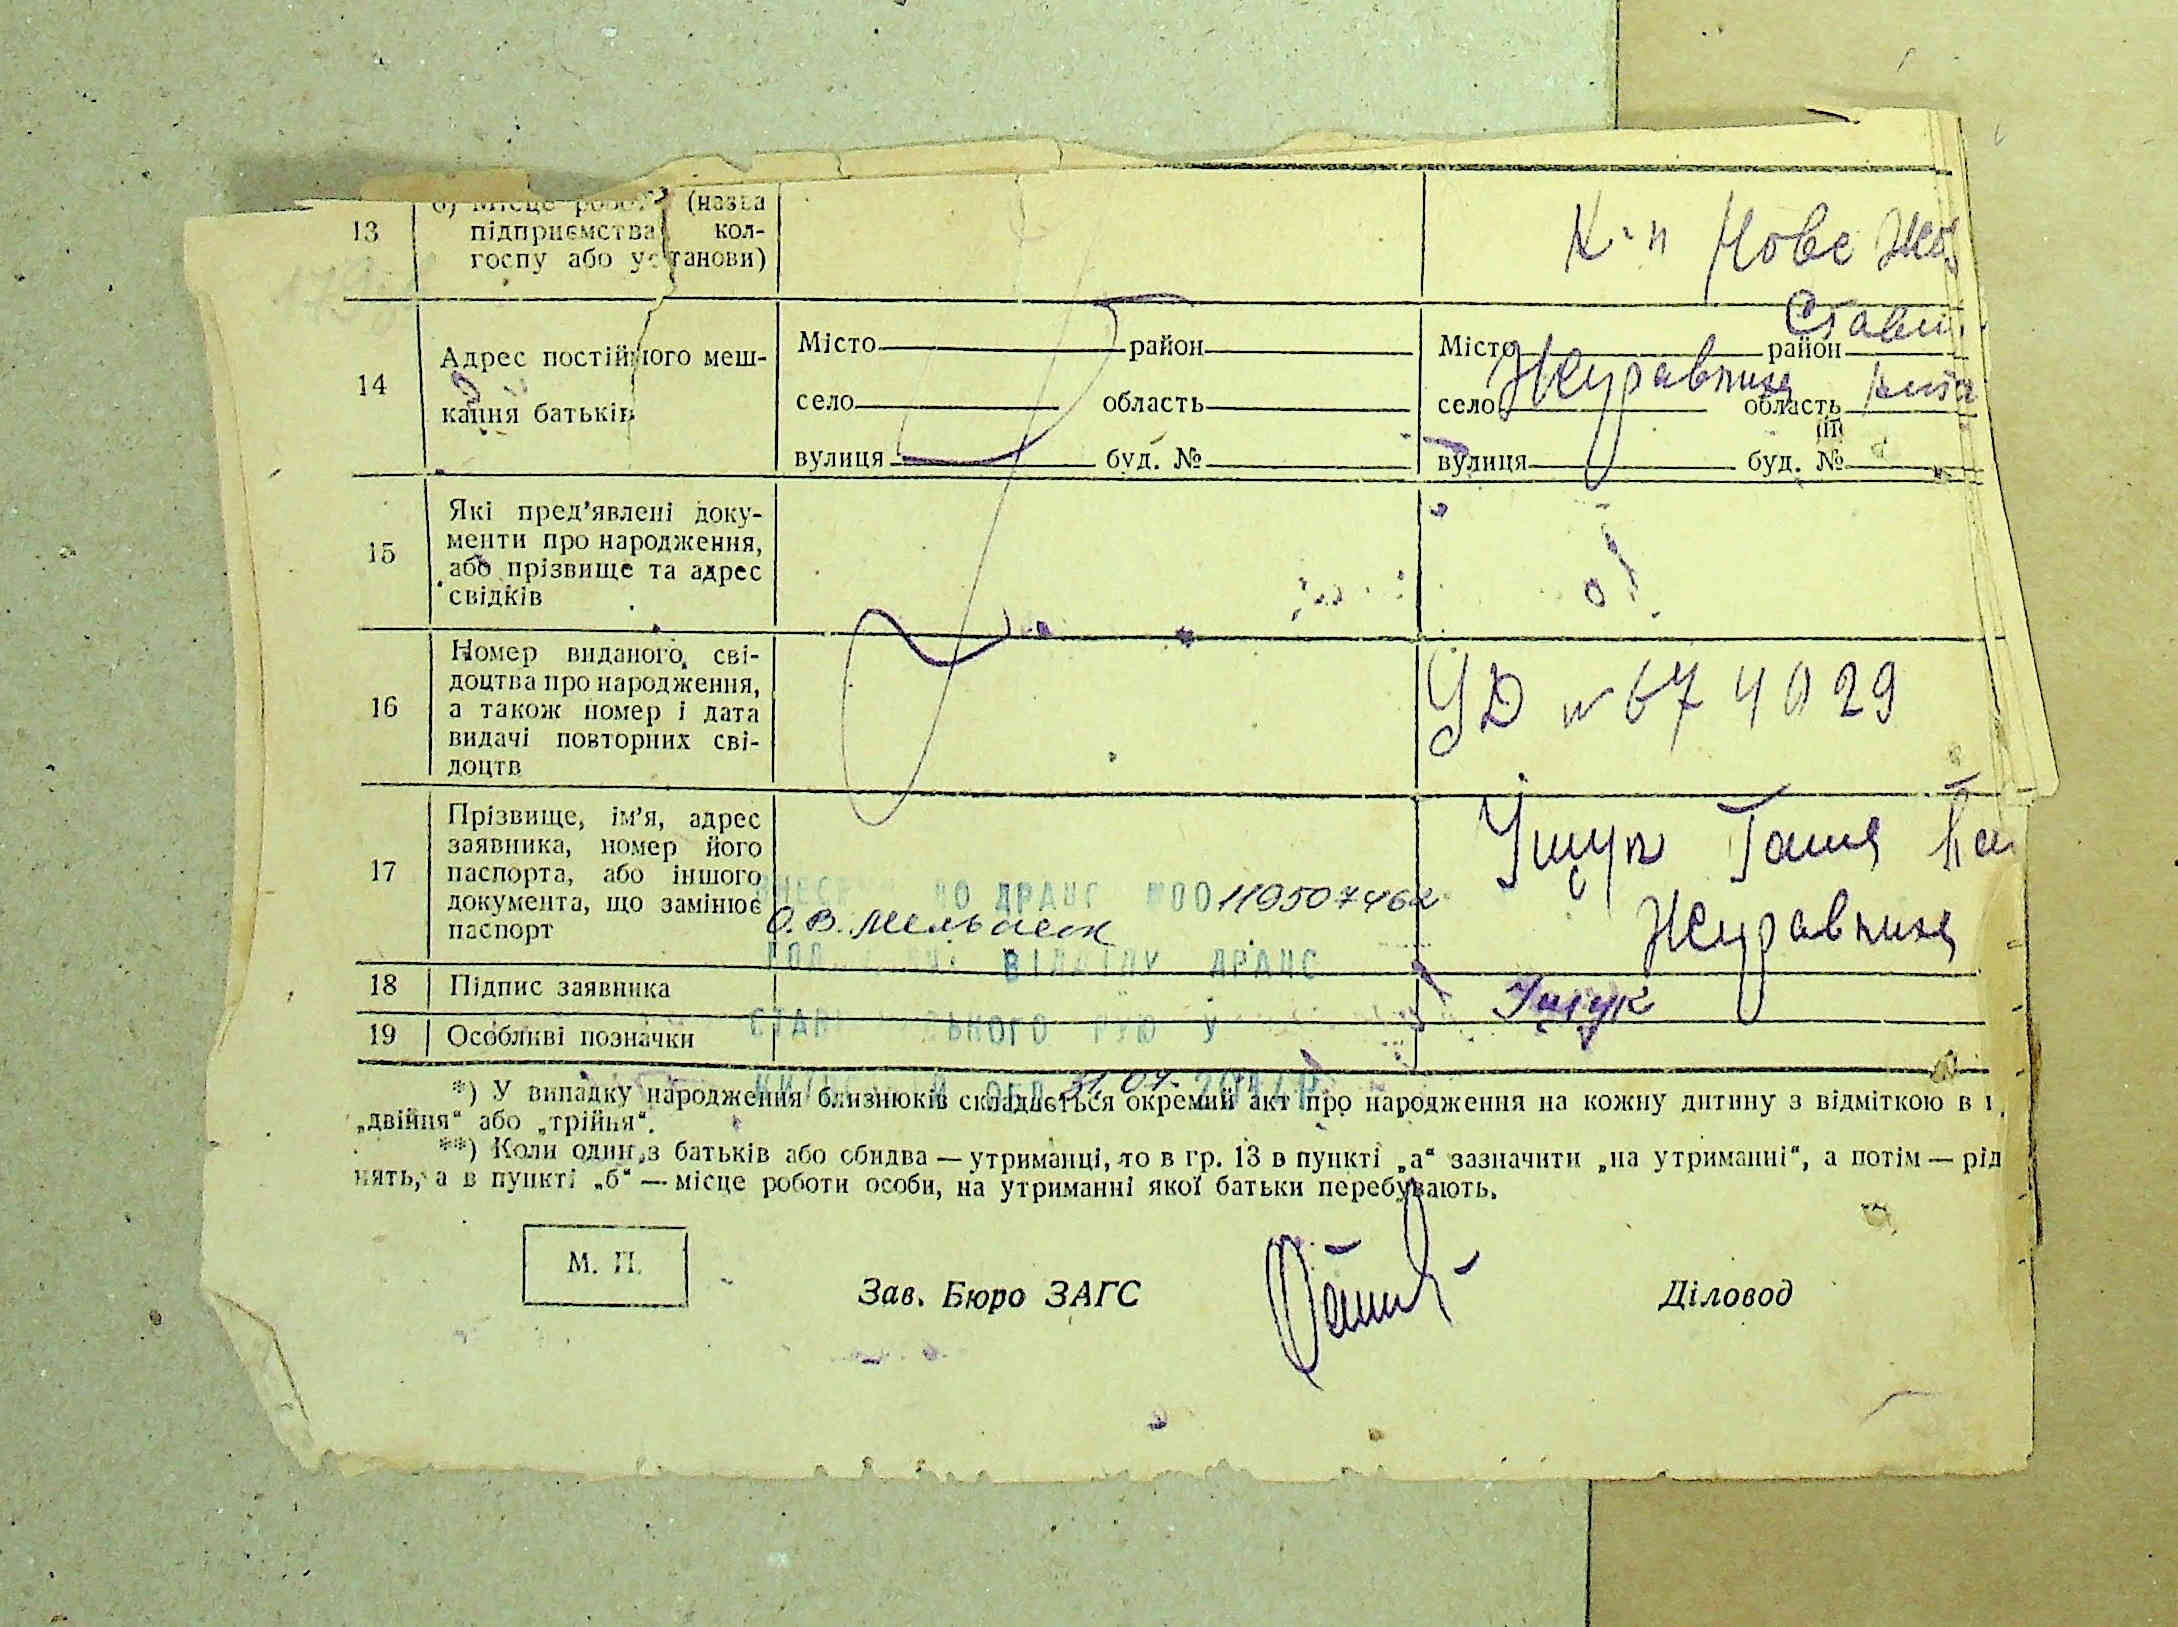 13
б) Місце роботи (назва
підприємства, кол-
госпу або установи)
К-п Нове Жи
14
Адрес постійного меш-
кання батьків
Місто район
село область
вулиця буд. №
Місто район Стави
село Журавлиха область Київ
вулиця буд. №
15
Які пред’явлені доку-
менти про народження,
або прізвище та адрес
свідків
16
Номер виданого сві-
доцтва про народження,
а також номер і дата
видачі повторних сві-
доцтв
УД № 674029
17
Прізвище, ім’я, адрес
заявника, номер його
паспорта, або іншого
документа, що замінює
паспорт
ДО ДРАЦС №00119507462
О.В. Мельник
ВІДДІЛУ ДРАЦС
Іщук Ганя
Журавлиха
18
Підпис заявника
Іщук
19
Особливі позначки
РУЮ У
ОБЛ. 31.07.
*) У випадку народження близнюків складається окремий акт про народження на кожну дитину з відміткою в
„двійня“ або „трійня“.
**) Коли один з батьків або обидва — утриманці, то в гр. 13 в пункті „а“ зазначити „на утриманні“, а потім — рід
нять, а в пункті „б“ — місце роботи особи, на утриманні якої батьки перебувають.
М. П.
Зав. Бюро ЗАГС
Діловод